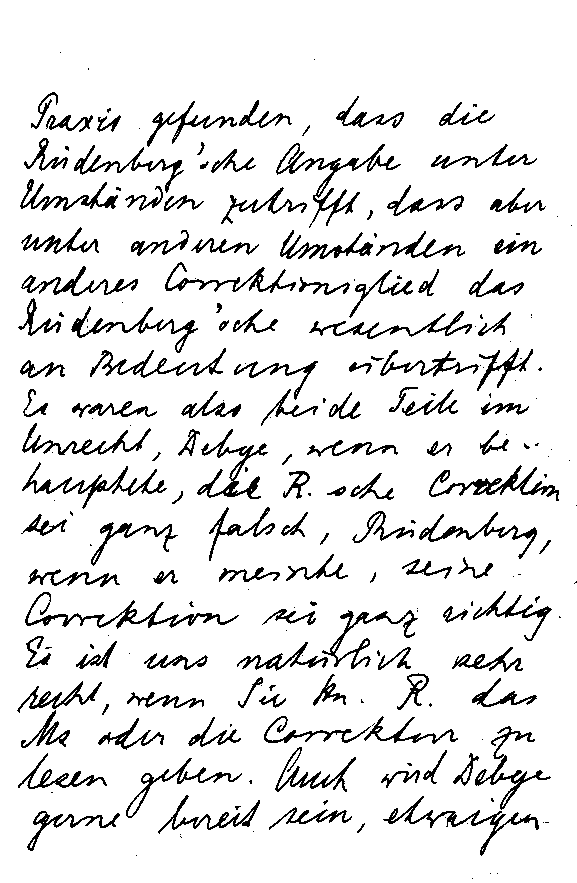 Praxis gefunden, dass die
Rüdenberg'sche Angabe unter
Umständen zutrifft, dass aber
unter anderen Umständen ein
anderes Correktionsglied das
Rüdenberg'sche wesentlich
an Bedeutung übertrifft.
Es waren also beide Teile im
Unrecht, Debye, wenn er be-
hauptete, die R. sche Correktion
sei ganz falsch, Rüdenberg,
wenn er meinte, seine
Correktion sei ganz richtig.
Es ist uns natürlich sehr
recht, wenn Sie Hn. R. das
Ms oder die Correktur zu
lesen geben. Auch wird Debye
gerne bereit sein, etwaigen